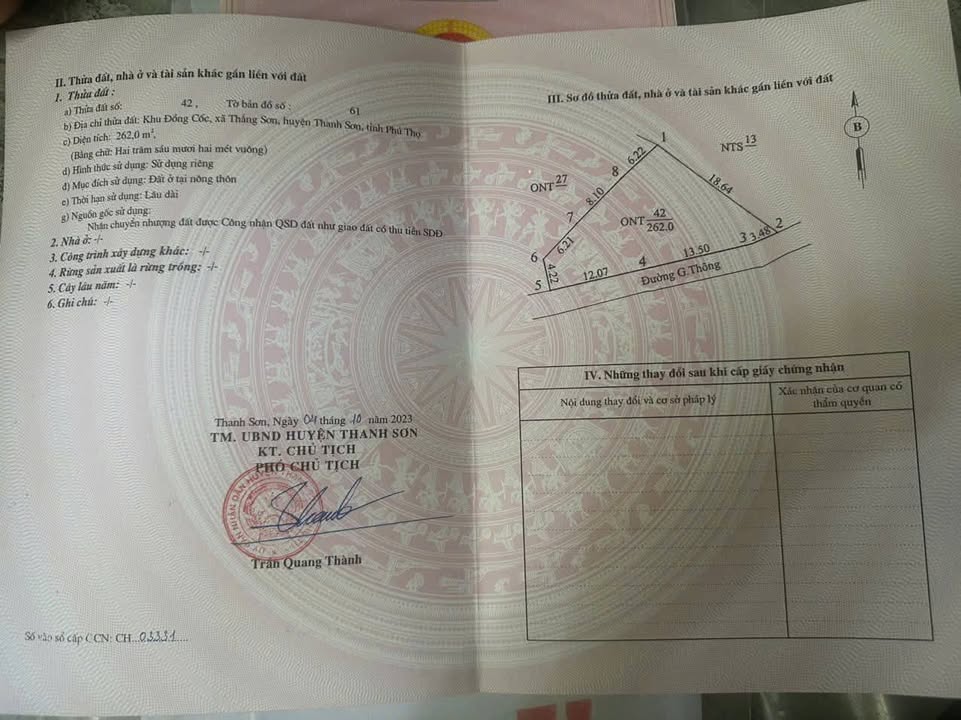 II. Thửa đất, nhà ở và tài sản khác gắn liền với đất
1. Thửa đất :
a) Thửa đất số: 42 , Tờ bản đồ số : 61
b) Địa chỉ thửa đất: Khu Đồng Cốc, xã Thắng Sơn, huyện Thanh Sơn, tỉnh Phú Thọ
c) Diện tích: 262,0 m²,
(Bằng chữ: Hai trăm sáu mươi hai mét vuông)
d) Hình thức sử dụng: Sử dụng riêng
đ) Mục đích sử dụng: Đất ở tại nông thôn
e) Thời hạn sử dụng: Lâu dài
g) Nguồn gốc sử dụng:
Nhận chuyển nhượng đất được Công nhận QSD đất như giao đất có thu tiền SDĐ
2. Nhà ở: -/-
3. Công trình xây dựng khác: -/-
4. Rừng sản xuất là rừng trồng: -/-
5. Cây lâu năm: -/-
6. Ghi chú: -/-
Thanh Sơn, Ngày 04 tháng 10 năm 2023
TM. UBND HUYỆN THANH SƠN
KT. CHỦ TỊCH
PHÓ CHỦ TỊCH
Trần Quang Thành
Số vào sổ cấp CCN: CH...03331....
III. Sơ đồ thửa đất, nhà ở và tài sản khác gắn liền với đất
B
NTS 13
1
6.22
8
ONT 27
8.10
18.64
7
ONT 42
262.0
6.21
2
3.48
3
6
13.50
4
4.22
12.07
5
Đường G.Thông
IV. Những thay đổi sau khi cấp giấy chứng nhận
Nội dung thay đổi và cơ sở pháp lý
Xác nhận của cơ quan có
thẩm quyền